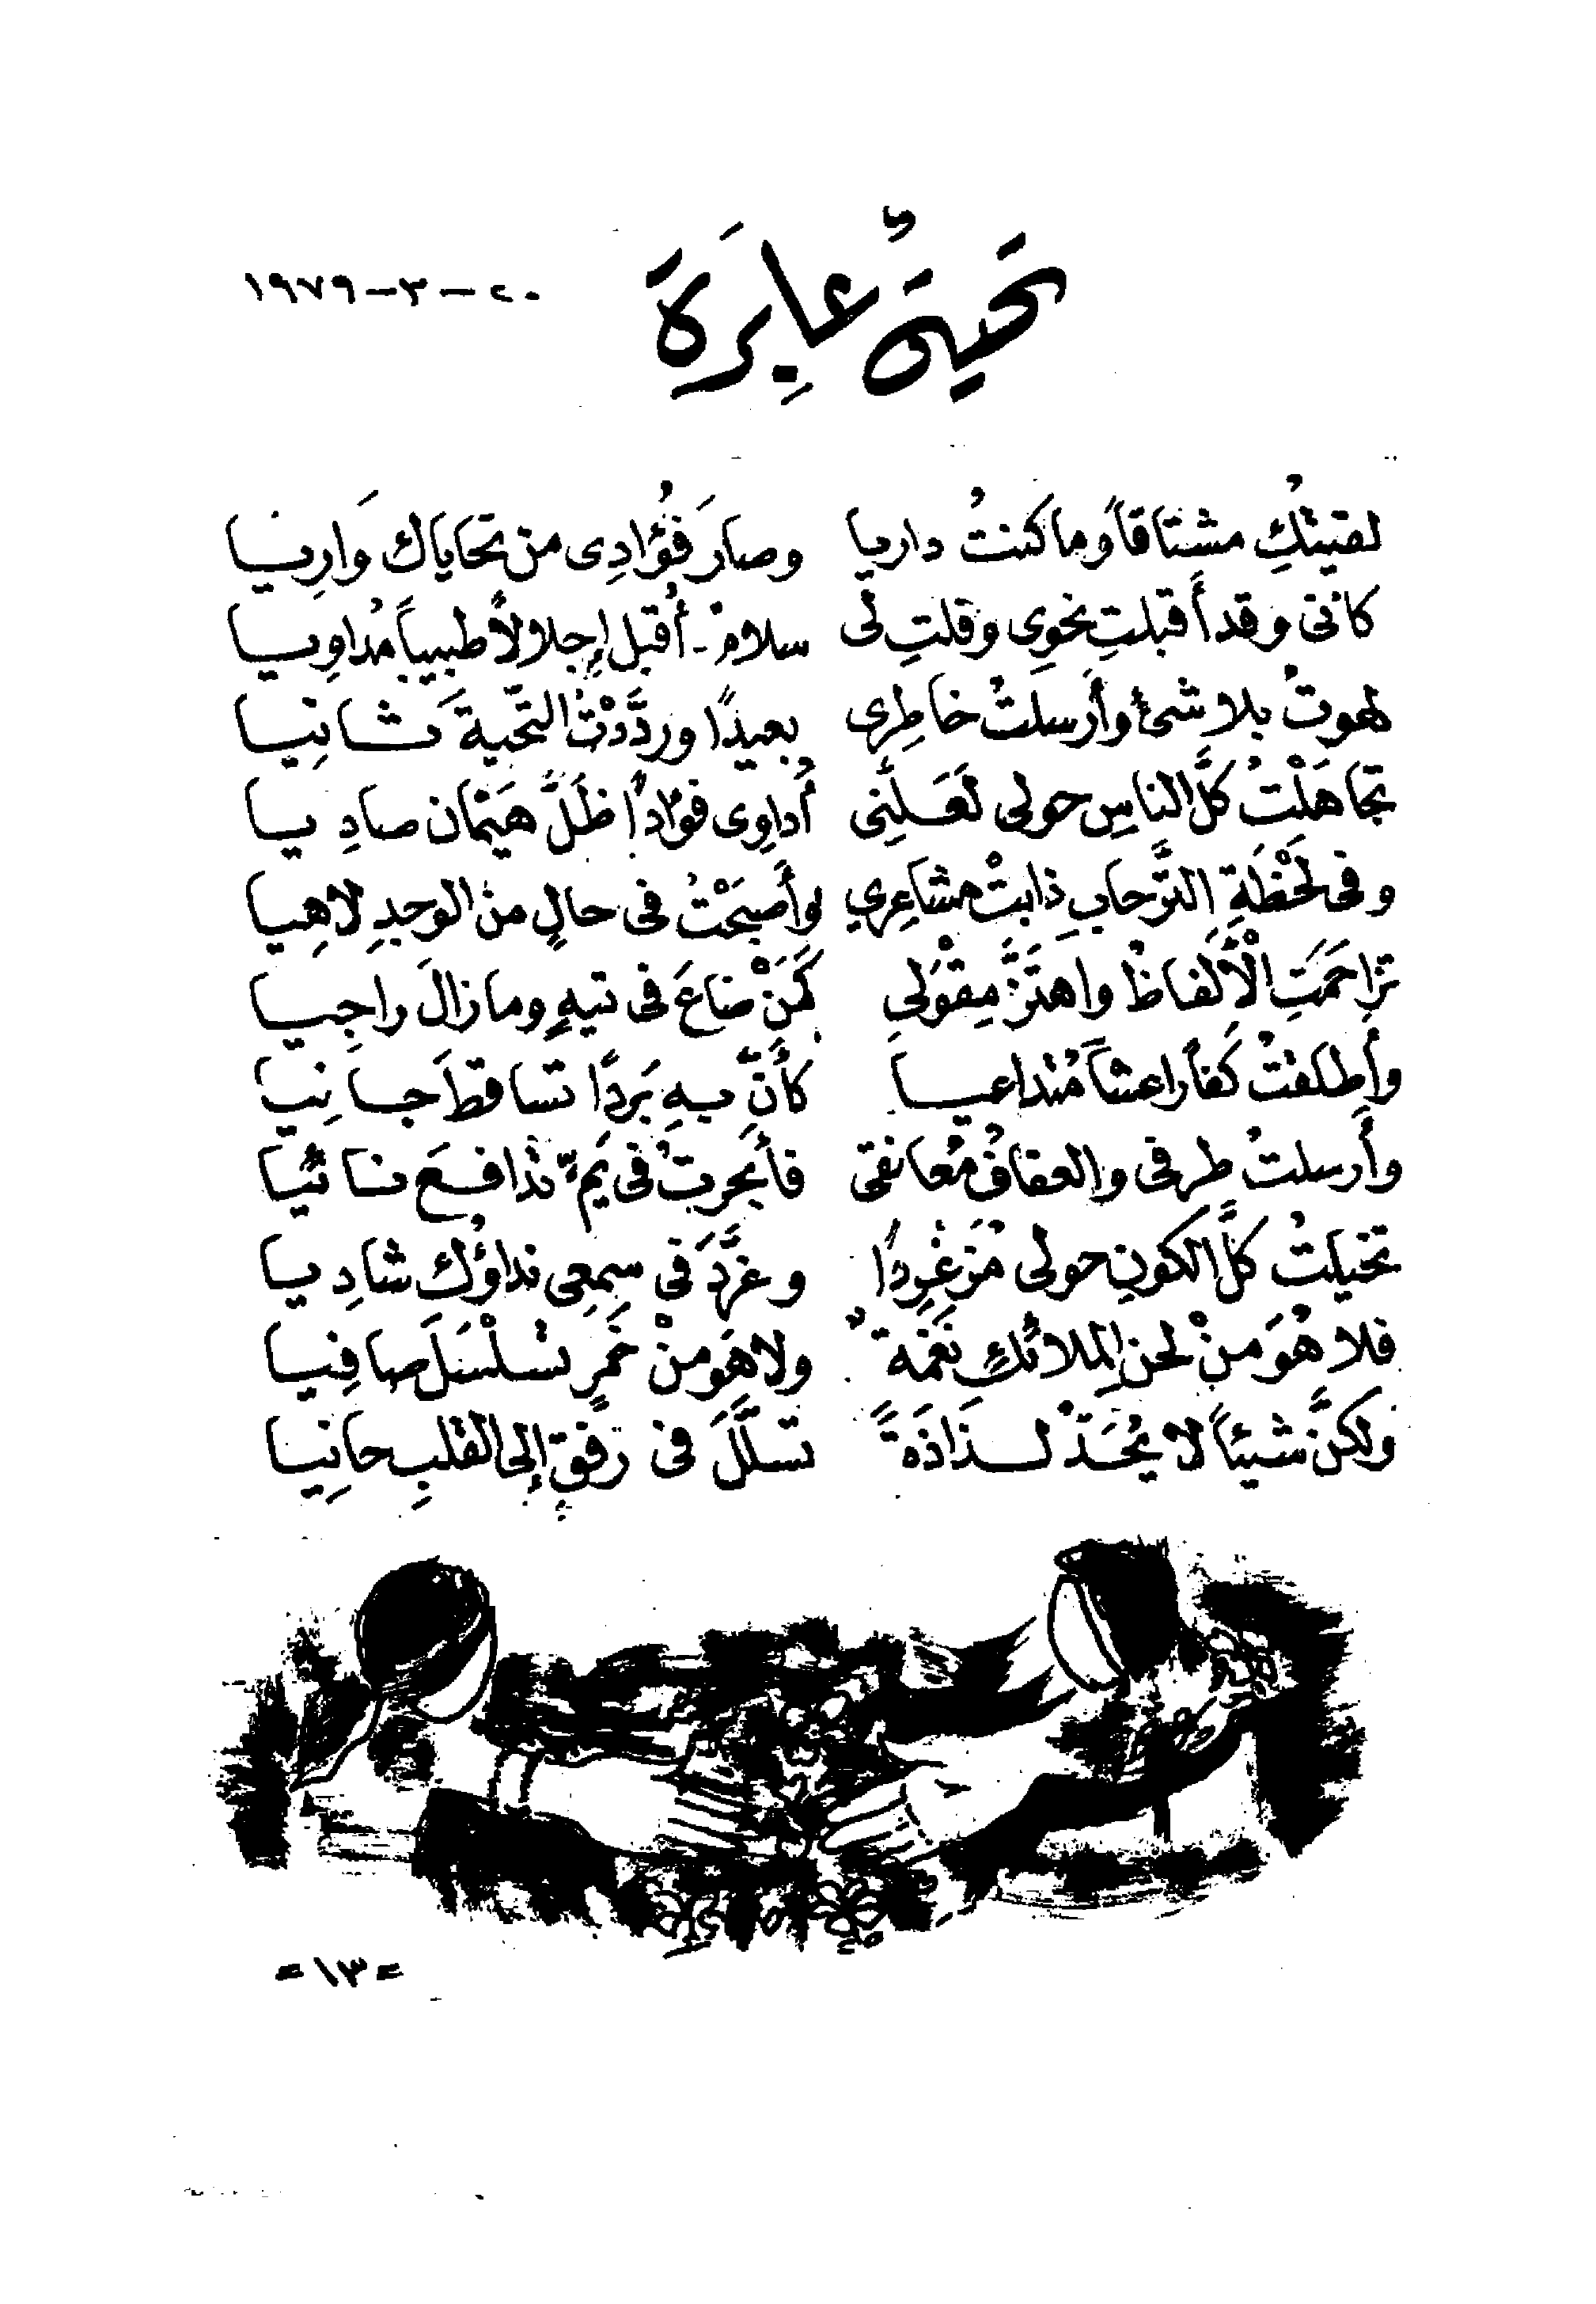 تحيةٌ عابِرَة
٢٠-٣-١٩٧٩
لقيتُكِ مشتاقاً وما كنتُ داريا وصارَ فُؤادِى من تحاياك وَارِيا
كانى وقد أقبلتِ نحوِى وقلتِ لى سلامٌ - أُقبل إجلالاً طبيباً مُداوِيا
لهوتُ بلا شئ وأرسلتُ خاطِرِى بعيدًا وردَّدْتُ التّحيةَ ثانِيا
تجاهَلْتُ كلَّ الناسِ حولى لَعَلَّنِى أُداوِى فؤادًا ظَلَّ هَيْمان صادِيا
وفى لَحْظَةِ التَّرحابِ ذابتْ مشاعِرِي وأَصبَحْتُ فى حالٍ من الوجدِ لاهِيا
تزاحمَتِ الْأَلفاظُ واهتَزَّ مِقْوَلى كَمَنْ ضاعَ فى تيهٍ وما زالَ راجِيا
وأطلقتُ كفاً راعشاً مُتداعيا كأَنَّ بهِ بَردًا تساقطَ جانِيا
وأرسلتُ طرفى والعفافُ مُعانقى فأبحرتُ فى يَمٍّ تدافعَ نائيا
تخيلتُ كلَّ الكونِ حولى مُزَغْرِدًا وغرَّدَ فى سمعِى نداؤُك شادِيا
فلا هُوَ منْ لحنِ الملائكِ نَغمةٌ ولا هَوَ منْ خَمرٍ تسلْسَلَ صافِيا
ولكنَّ شيئاً لا يُحَدُّ لذَاذَةً تسلَّلَ فى رفقٍ إلى القلبِ حانِيا
=١٣=